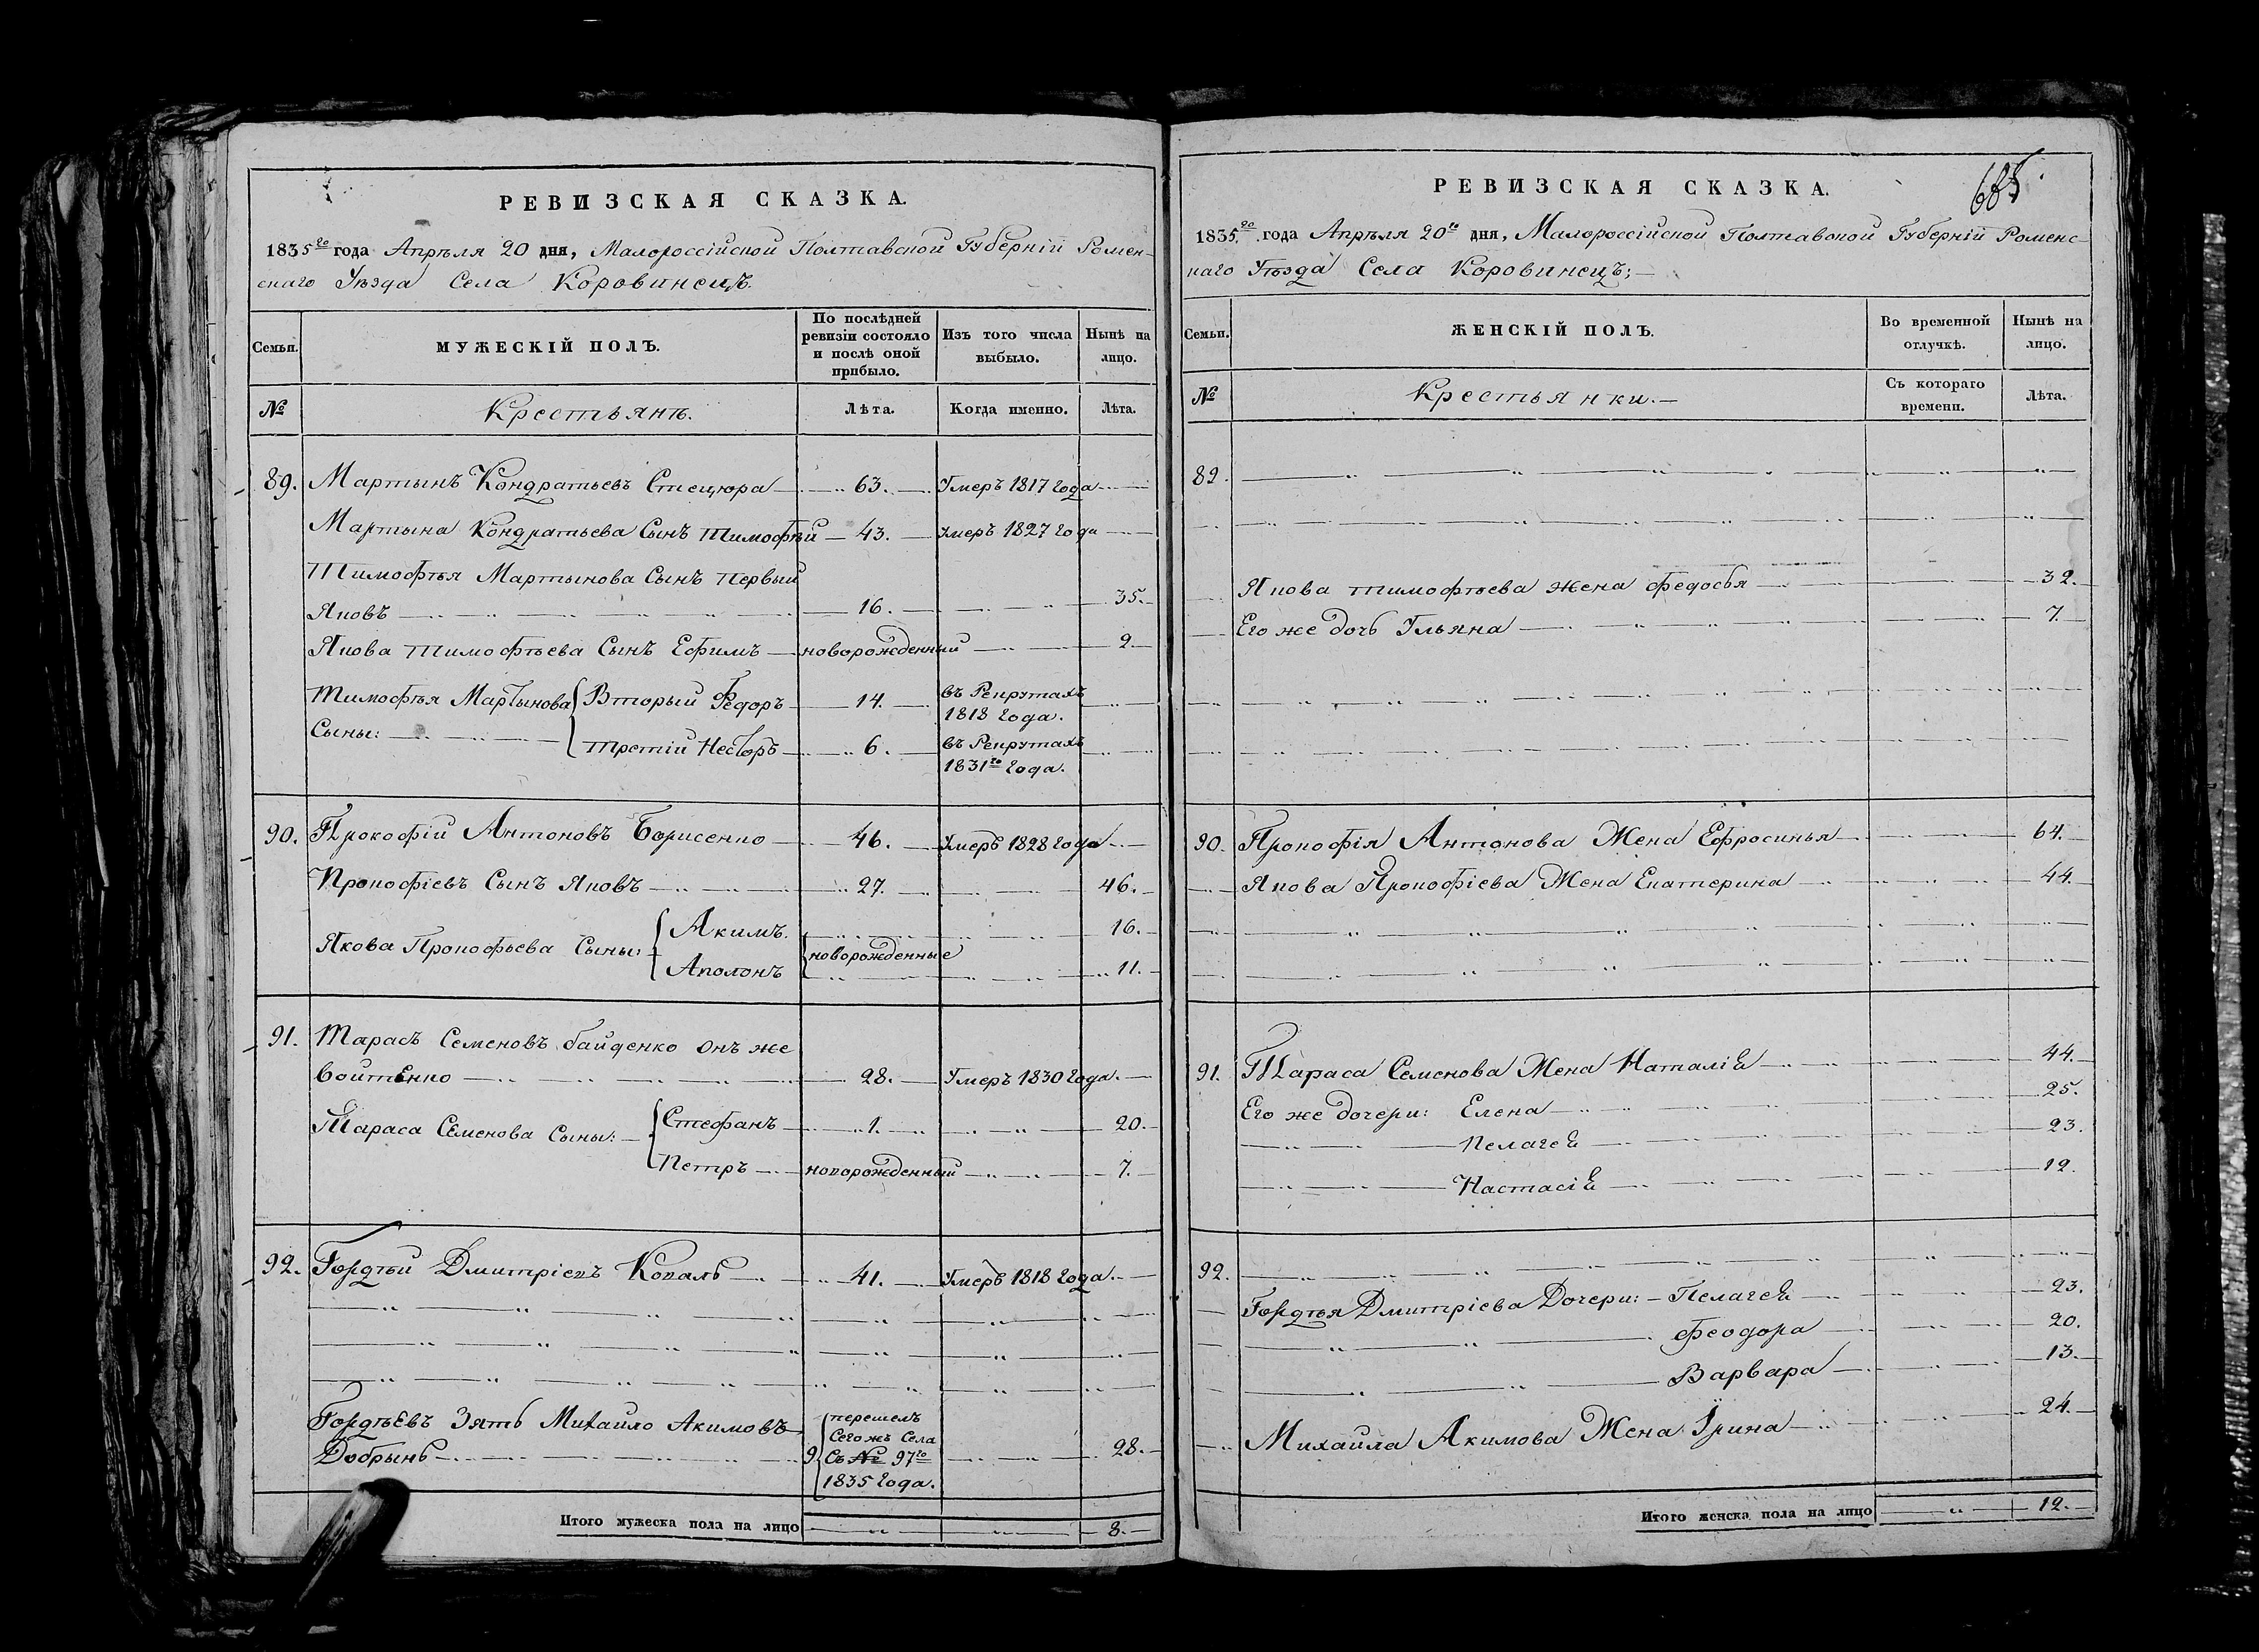 РЕВИЗСКАЯ СКАЗКА.
1835го года Апрѣля 20 дня, Малороссійской Полтавской Губерніи Ромен-
скаго Уѣзда Села Коровинецъ.
Семьи. МУЖЕСКІЙ ПОЛЪ. По послѣдней ревизіи состояло и послѣ оной прибыло. Изъ того числа выбыло. Нынѣ на лицо.
№ Крестьянѣ. Лѣта. Когда именно. Лѣта.
89. Мартынъ Кондратьевъ Стецюра 63. Умеръ 1817 года
Мартына Кондратьева Сынъ Тимофѣй 43. Умеръ 1827 года
Тимофѣя Мартынова Сынъ Первый
Яковъ 16. 35.
Якова Тимофѣева Сынъ Ефимъ новорожденный 2
Тимофѣя Мартынова Вторый Федоръ 14. въ Рекрутахъ 1818 года.
Сыны: Третій Несторъ 6. въ Рекрутахъ 1831го года.
90. Прокофій Антоновъ Борисенко 46. Умеръ 1828 года
Прокофіевъ Сынъ Яковъ 27. 46.
Якова Прокофьева Сыны: Акимъ. новорожденные 16.
Аполонъ 11.
91. Тарасъ Семеновъ байденко онъ же
войтенко 28. Умеръ 1830 года.
Тараса Семенова Сыны: Стефанъ 1. 20.
Петръ новорожденный 7.
92. Гордѣй Дмитріевъ Коваль 41. Умеръ 1818 года.
Гордѣевъ Зять Михайло Акимовъ
Добрынь 9 перешелъ Сегожъ Села Съ № 97го 1835 года. 28.
Итого мужеска пола на лицо 8.
РЕВИЗСКАЯ СКАЗКА.
685
1835го года Апрѣля 20го дня, Малороссійской Полтавской Губерніи Роменс-
каго Уѣзда Села Коровинецъ;
Семьи. ЖЕНСКІЙ ПОЛЪ. Во временной отлучкѣ. Нынѣ на лицо.
№ Крестьянки. Съ котораго времени. Лѣта.
89.
Якова Тимофѣева жена Федосья 32.
Его же дочь Ульяна 7.
90. Прокофія Антонова Жена Ефросинья 64.
Якова Прокофіева Жена Екатерина 44.
91. Тараса Семенова Жена Наталія 44.
Его же дочери: Елена 25.
Пелагея 23.
Настасія 12.
92.
Гордѣя Дмитріева Дочери: Пелагея 23.
Феодора 20.
Варвара 13.
Михайла Акимова Жена Ірина 24.
Итого женска пола на лицо 12.